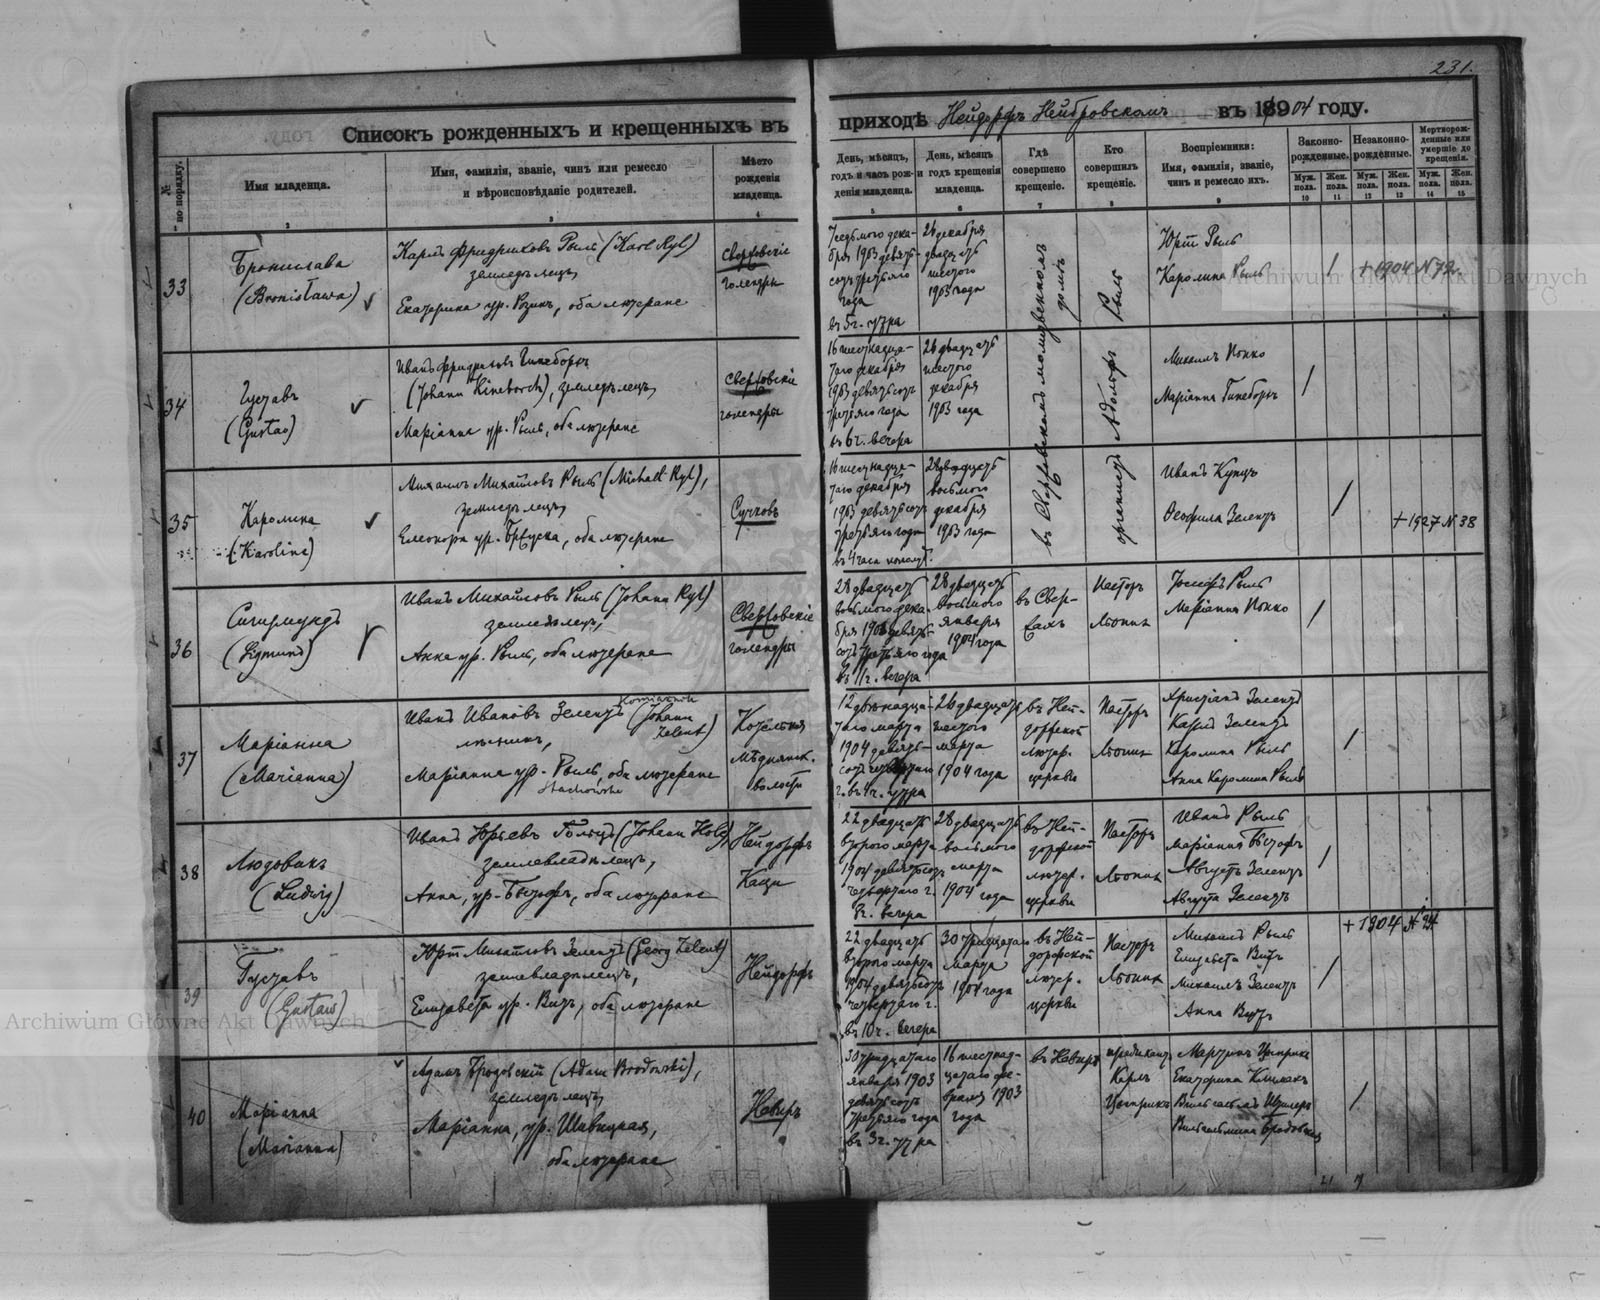 231.
Списокъ рожденныхъ и крещенныхъ въ
приходѣ Нейдорфъ Нейбровскомъ въ 1904 году.
№ по порядку.
Имя младенца.
Имя, фамилія, званіе, чинъ или ремесло
и вѣроисповѣданіе родителей.
Мѣсто
рожденія
младенца.
День, мѣсяцъ,
годъ и часъ рож-
денія младенца.
День, мѣсяцъ
и годъ крещенія
младенца.
Гдѣ
совершено
крещеніе.
Кто
совершилъ
крещеніе.
Воспріемники:
Имя, фамилія, званіе,
чинъ и ремесло ихъ.
Законно-
рожденные.
Незаконно-
рожденные.
Мертворож-
денные или
умершіе до
крещенія.
Муж. пола.
Жен. пола.
Муж. пола.
Жен. пола.
Муж. пола.
Жен. пола.
1 2 3 4 5 6 7 8 9 10 11 12 13 14 15
33
Бронислава
(Bronisława)
Карлъ Фридриховъ Рыль (Karl Ryl)
земледѣлецъ
Екатерина ур. Рознъ, оба лютеране
Свержовскіе
голендры
7 седьмого дека-
бря 1903 девять-
сотъ третьяго
года
въ 5 ч. утра
26 декабря
двадцать
шестого
1903 года
въ Свержовскомъ молитвенномъ
домѣ
органистъ Адольфъ
Рыль
Юрт Рыль
Каролина Рыль
+ 1904 N 72.
34
Густавъ
(Gustav)
Иванъ Фридриховъ Гинеборхъ
(Johann Hineborch), земледѣлецъ,
Маріанна ур. Рыль, оба лютеране
Свержовскіе
голендры
16 шестнадца-
таго декабря
1903 девятьсотъ
третьяго года
въ 6 ч. вечера
26 двадцать
шестого
декабря
1903 года
Михаилъ Попко
Маріанна Гинеборхъ
35
Каролина
(Karoline)
Михаилъ Михайловъ Рыль (Michael Ryl),
земледѣлецъ
Елеонора ур. Бытуска, оба лютеране
Сучковъ
16 шестнадца-
таго декабря
1903 девятьсотъ
третьяго года
въ 4 часа пополуд.
28 двадцать
восьмого
декабря
1903 года
Иванъ Купцъ
Феофила Зелентъ
+ 1927 N 38
36
Сигизмундъ
(Zygmund)
Иванъ Михайловъ Рыль (Johann Ryl)
земледѣлецъ,
Анна ур. Рыль, оба лютеране
Свержовскіе
голендры
28 двадцать
восьмого дека-
бря 1903 девять-
сотъ третьяго года
въ 11 ч. вечера
28 двадцать
восьмого
января
1904 года
въ Свер-
жахъ
Пасторъ
Іосифъ Рыль
Маріанна Попко
37
Маріанна
(Marianna)
Иванъ Ивановъ Зелентъ (Johann
Zelent)
лѣсникъ,
Маріанна ур. Рыль, оба лютеране
Мѣднянск.
волости
12 двѣнадца-
таго марта
1904 девять-
сотъ четвертаго
г. въ 4 ч. утра
26 двадцать
шестого
марта
1904 года
въ Ней-
дорфской
лютер.
церкви
Пасторъ
Христіанъ Зелентъ
Карлъ Зелентъ
Каролина Рыль
Анна Каролина Рыль
38
Людовикъ
(Ludwig)
Иванъ Юрьевъ Гольцъ (Johann Holz)
землевладѣлецъ,
Анна, ур. Бытофъ, оба лютеране
Нейдорфъ
22 двадцать
второго марта
1904 девятьсотъ
четвертаго г.
8 ч. вечера
28 двадцать
восьмого
марта
1904 года
въ Ней-
дорфской
лютер.
церкви
Пасторъ
Иванъ Рыль
Маріанна Бытофъ
Августъ Зелентъ
Августа Зелентъ
39
Густавъ
(Gustaw)
Юрт Михайловъ Зелентъ (Georg Zelent)
землевладѣлецъ,
Елизавета ур. Витъ, оба лютеране
Нейдорфъ
22 двадцать
второго марта
1904 девятьсотъ
четвертаго г.
въ 10 ч. вечера
30 тридцатаго
марта
1904 года
въ Ней-
дорфской
лютер.
церкви
Пасторъ
Михаилъ Рыль
Елизавета Витъ
Михаилъ Зелентъ
Анна Витъ
+ 1904 N 24
40
Маріанна
(Marianna)
Адамъ Бродовскій (Adam Brodowski),
земледѣлецъ,
Маріанна, ур. Шивицкая,
оба лютеране
Невиръ
30 тридцатаго
января 1903
девятьсотъ
третьяго года
въ 3 ч. утра
16 шестнад-
цатаго фе-
враля 1903
года
въ Невирѣ
Карлъ
Екатерина Климахъ
Вильгельмина Бродовская
21 7
Archiwum Główne Akt Dawnych
Archiwum Główne Akt Dawnych